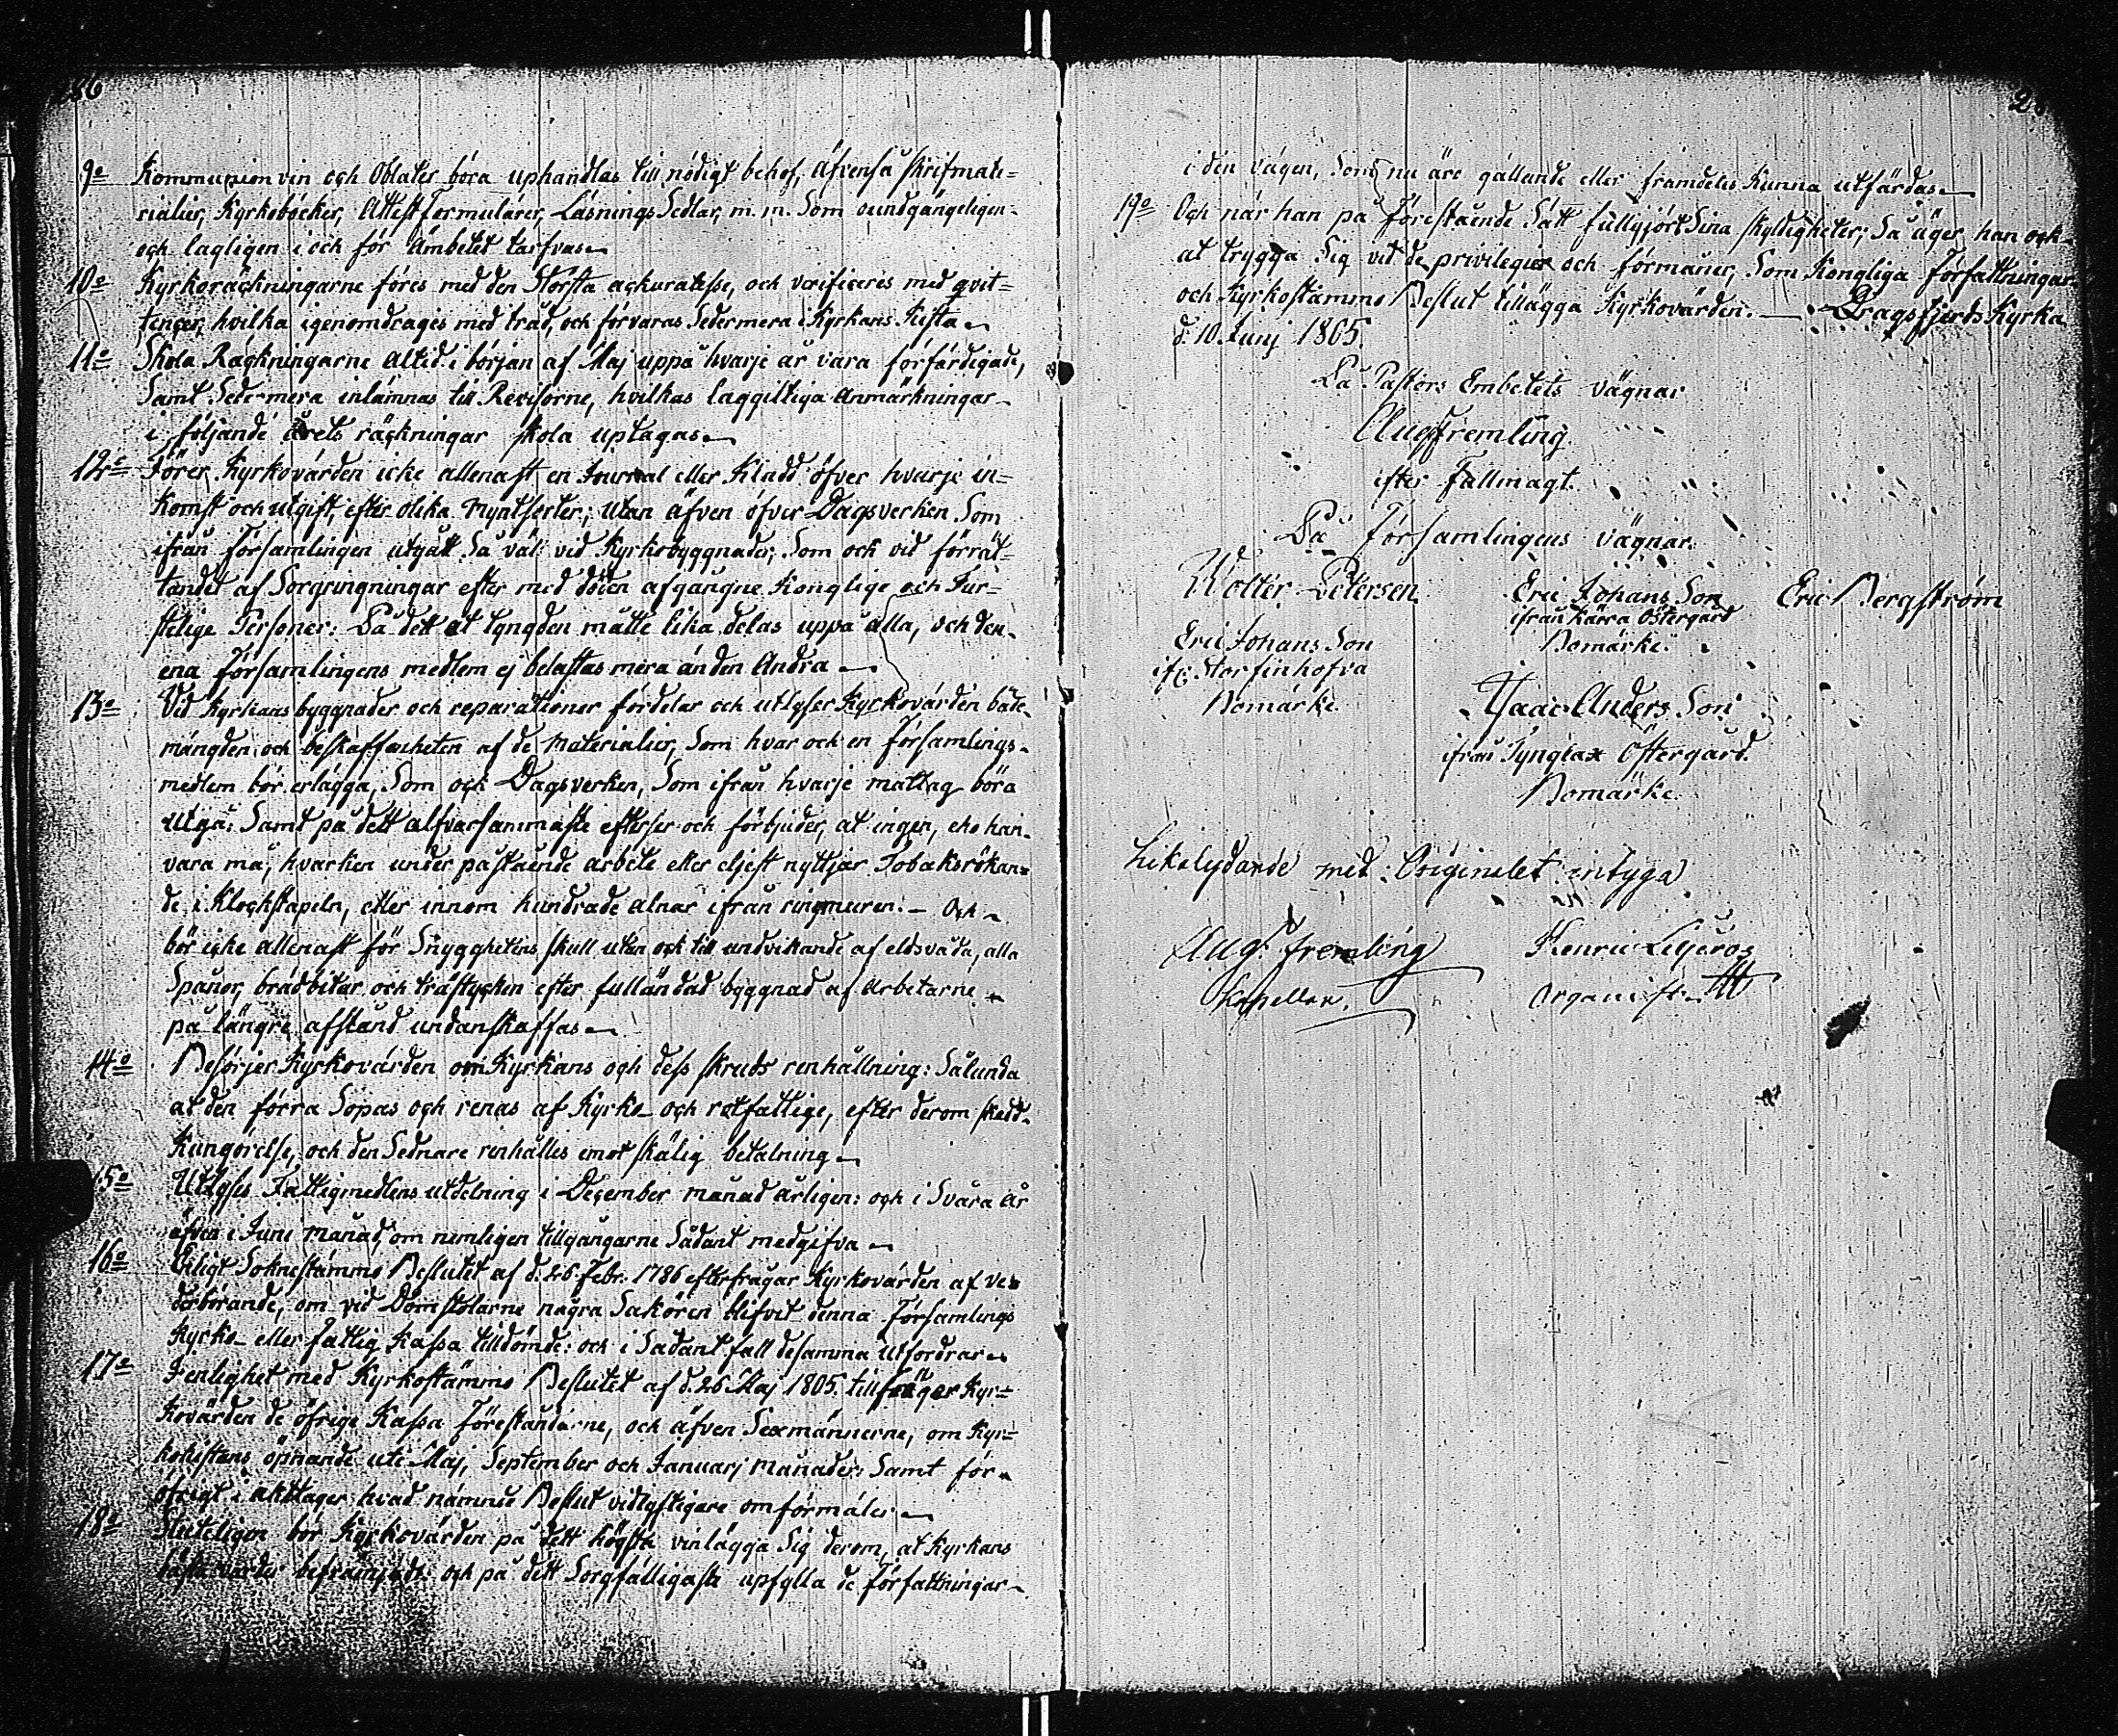 9o Kommunion vin och Oblater böra uphandlas till nödigt behof, äfvenså skrifmate=
rialier, Kyrkoböcker, Attest formulärer, Läsnings Sedlar, m. m. Som oundgängeligen
och lagligen i och för Ämbetet tarfvas
10o Kyrkoräckningarne föres med den Största ackuratesse, och verificeres med qvit=
tencer, hvilka igenomdrages med tråd, och förvaras Sedermera i Kyrkans Kista
11o Skola Räckningarne altid i början af Maj uppå hvarje år vara förfärdigade,
Samt Sedermera inlämnas till Revisorne, hvilkas laggiltiga Anmärkningar
i följande årets räckningar skola uptagas
12o Förer Kyrkovärden icke allenast en Journal eller Kladd öfver hvarje in=
komst och utgift, efter olika Myntsorter; utan äfven öfver Dagsverken Som
ifrån Församlingen utgått Så väl vid Kyrkobyggnader, Som ock vid förrät=
tandet af Sorgringningar efter med döden afgångne Konglige och Fur=
stelige Personer: På dett at tyngden måtte lika delas uppå alla, och den
ena Församlingens medlem ej belastas mera än den Andra
13o Vid Kyrkans byggnader och reparationer fördelar och utlyser Kyrkovärden både
mängden och beskaffenheten af de Materialier, Som hvar och en Församlings
medlem bör erlägga, Som och Dagsverken, Som ifrån hvarje matlag böra
utgå: Samt på dett alfvarsammaste efterser och förbjuder, at ingen, eho han
vara må, hvarken under påstående arbete eller eljest nyttjar Tobaksrökan=
de i Klockstapeln, eller innom hundrade alnar ifrån ringmuren. Och
bör icke allenast för Snygghetens skull utan ock till undvikande af eldsvåda, alla
Spånor, brädbitar och trästycken efter fulländad byggnad af Arbetarne
på längre afstånd undanskaffas
14o Besörjer Kyrkovärden om Kyrkans och dess skruds renhållning: Sålunda
at den förra Sopas och renas af Kyrko och rotfattige, efter derom skedd
Kungörelse, och den Sednare renhålles emot skälig betalning
15o Utlyses Fattigmedlens utdelning i December månad årligen: och i Svåra År
äfven i Juni Månad, om nemligen tillgångarne Sådant medgifva
16o Enligt Soknestämmo Beslutet af d. 26 Febr. 1786 efterfrågar Kyrkovärden af ve=
derbörande, om vid Domstolarne några Sakören blifvit denna Församlings
Kyrko eller fattig Kassa tilldömde: och i Sådant fall desamma utfordrar
17o I enlighet med Kyrkostämmo Beslutet af d. 26 Maj 1805. tillsäger Kyr=
kovärden de öfrige Kassa Föreståndarne, och äfven Sexmännerne, om Kyr=
kokistans öpnande uti Maj, September och Januarj Månader: Samt för
öfrigt i akttager hvad nämnde Beslut vidlyftigare omförmäler
18o Sluteligen bör Kyrkovärden på dett högsta vinlägga Sig derom, at Kyrkans
bästa varder befrämjadt: och på dett Sorgfälligaste upfylla de Författningar
i den vägen, Som nu äre gällande eller framdeles Kunna utfärdas
19o Och när han på Föreståënde Sätt fullgjort Sina skyldigheter; Så äger han och
at trygga Sig vid de privilegier och förmåner, Som Kongliga Författningar
och Kyrkostämmo Beslut tillägga Kyrkovärden. Dragsfjerds Kyrka
d. 10 Junj 1805.
På Pastors Embetets vägnar
Aug Fremling
efter Fullmagt.
På Församlingens vägnar.
Wolter Petersen Eric Johans Son Eric Bergström
ifrån Kärra Östergård
Eric Johans Son Bomärke.
ifr: Storfinhofva
Bomärke. Isaac Anders Son
ifrån Synglax Östergård.
Bomärke.
Likalydande med Originalet intyga
Aug. Fremling Henric Liljeros
Kapellan. Organist